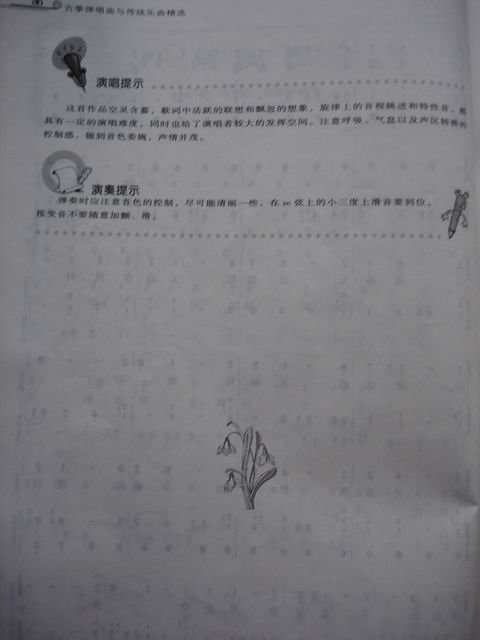 古筝弹唱曲与传统乐曲精选
演唱提示
这首作品空灵含蓄，歌词中活跃的联想和飘忽的想象，旋律上的音程跳进和特性音，都
具有一定的演唱难度，同时也给了演唱者较大的发挥空间。注意呼吸、气息以及声区转换的
控制感，做到音色委婉，声情并茂。
演奏提示
弹奏时应注意音色的控制，尽可能清丽一些。在 m 弦上的小三度上滑音要到位。
按变音不要随意加颤、滑。